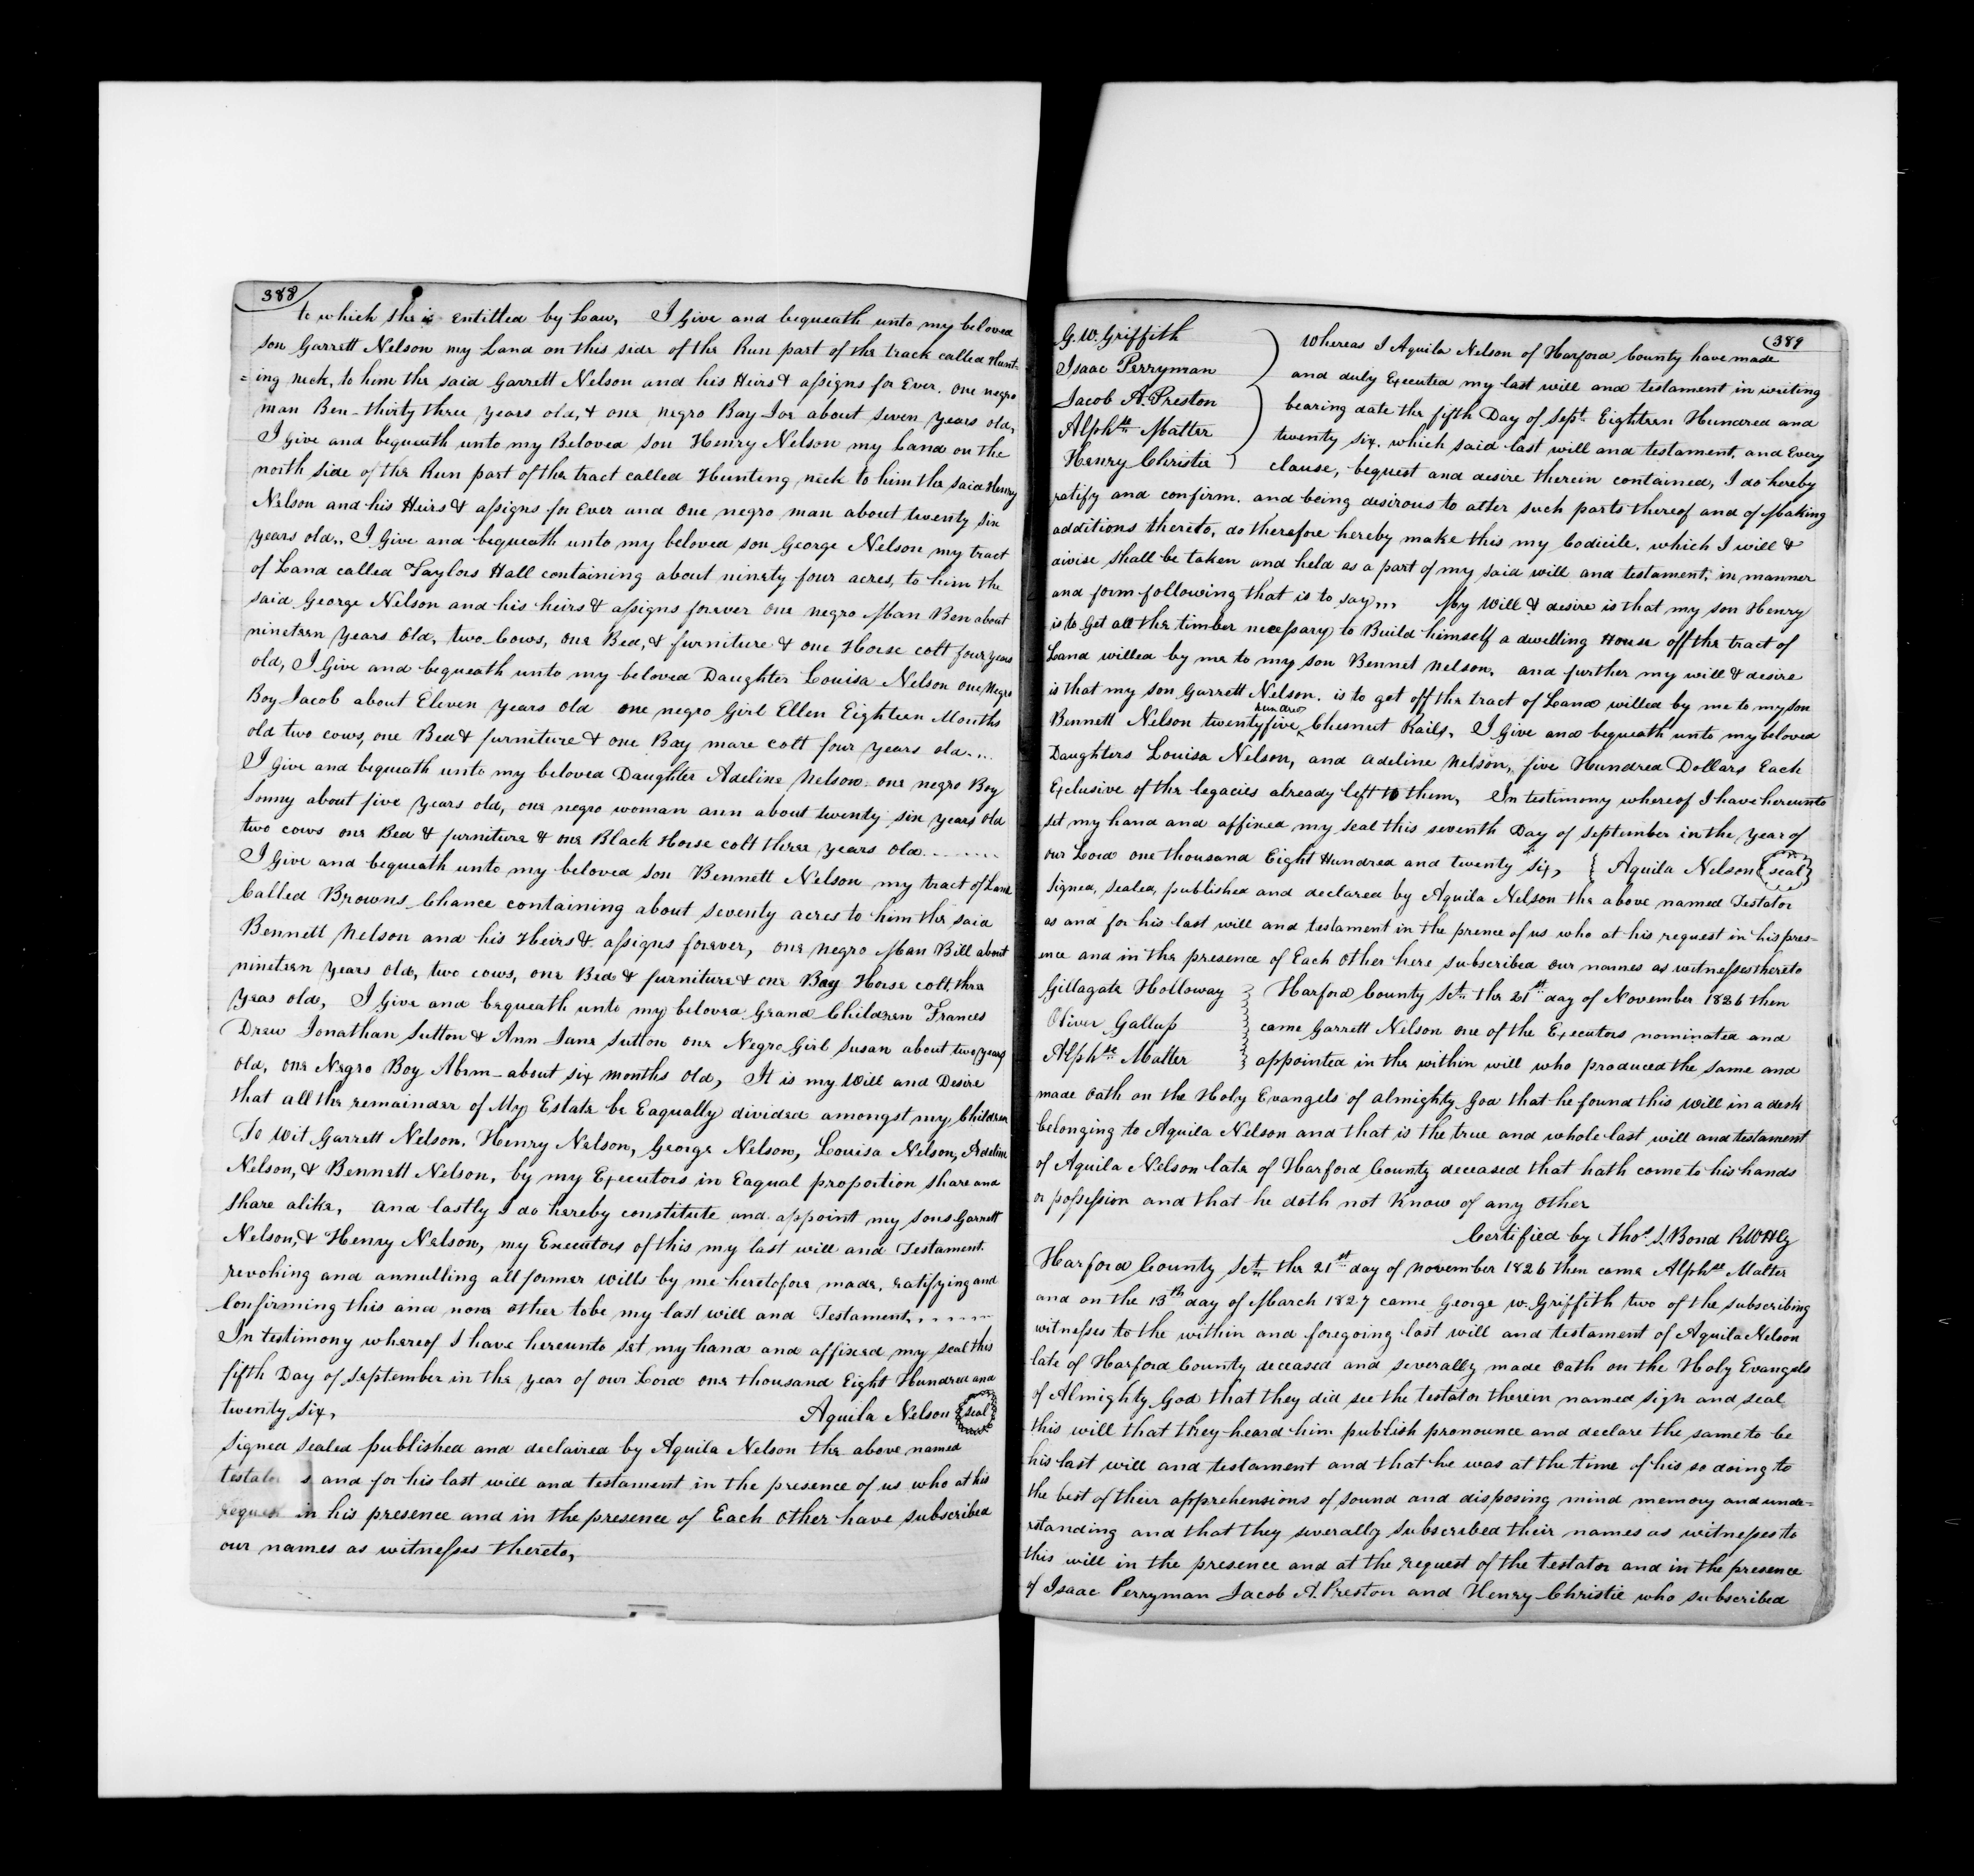 388
to which she is entitled by Law, I Give and bequeath unto my beloved
son Garrett Nelson my Land on this side of the Run part of the track called Hunt-
=ing neck, to him the said Garrett Nelson and his Heirs & assigns for Ever. One negro
man Ben - thirty three years old, & one negro Boy Joe about seven years old,
I Give and bequeath unto my Beloved son Henry Nelson my Land on the
north side of the Run part of the tract called Hunting neck to him the said Henry
Nelson and his Heirs & assigns for Ever and one negro man about twenty six
years old,, I Give and bequeath unto my beloved son George Nelson my tract
of Land called Taylors Hall containing about ninety four acres, to him the
said George Nelson and his heirs & assigns forever one negro Man Ben about
nineteen years old, two Cows, one Bed, & furniture & one Horse colt four years
old, I Give and bequeath unto my beloved Daughter Louisa Nelson one Negro
Boy Jacob about Eleven years old one negro Girl Ellen Eighteen Months
old two cows, one Bed & furniture & one Bay mare colt four years old....
I Give and bequeath unto my beloved Daughter Adeline Nelson one negro Boy
Sonny about five years old, one negro woman ann about twenty six years old
two cows one Bed & furniture & one Black Horse colt three years old.......
I Give and bequeath unto my beloved son Bennett Nelson my tract of Land
Called Browns Chance containing about seventy acres to him the said
Bennett Nelson and his Heirs & assigns forever, one negro Man Bill about
nineteen years old, two cows, one Bed & furniture & one Bay Horse colt three
yeas old, I Give and bequeath unto my beloved Grand Children Frances
Drew Jonathan Sutton & Ann Jane Sutton one Negro Girl Susan about two years
old, one Negro Boy Abrm - about six months old, It is my Will and Desire
that all the remainder of My Estate be Eaqually divided amongst my Children
To wit Garrett Nelson, Henry Nelson, George Nelson, Louisa Nelson, Adeline
Nelson, & Bennett Nelson, by my Executors in Eaqual proportion share and
share alike, and lastly I do hereby constitute and appoint my sons Garrett
Nelson, & Henry Nelson, my Executors of this my last will and Testament.
revoking and annulling all former wills by me heretofore made, ratifying and
Confirming this and none other tobe my last will and Testament......
In testimony whereof I have hereunto set my hand and affixed my seal this
fifth Day of September in the year of our Lord one thousand Eight Hundred and
twenty six, Aquila Nelson seal
signed sealed published and declaired by Aquila Nelson the above named
testator s and for his last will and testament in the presence of us who at his
request in his presence and in the presence of Each Other have subscribed
our names as witnesses thereto,
389
G. W. Griffith
Isaac Perryman
Jacob A. Preston
Alphse Matter
Henry Christie
Whereas I Aquila Nelson of Harford County have made
and duly Executed my last will and testament in writing
bearing date the fifth Day of Sept. Eighteen Hundred and
twenty six. which said last will and testament, and Every
clause, bequest and desire therein contained, I do hereby
ratify and confirm. and being desirous to alter such parts thereof and of Making
additions thereto, do therefore hereby make this my Codicile. which I will &
divise shall be taken and held as a part of my said will and testament, in manner
and form following that is to say,,, My Will & desire is that my son Henry
is to Get all the timber necessary to Build himself a dwelling House off the tract of
Land willed by me to my son Bennet nelson, and further my will & desire
is that my son Garrett Nelson. is to get off the tract of Land willed by me to my son
Bennett Nelson twenty five hundred Chesnut Rails, I Give and bequeath unto my beloved
Daughters Louisa Nelson, and adeline nelson, five Hundred Dollars Each
Exclusive of the legacies already left to them, In testimony whereof I have hereunto
set my hand and affixed my seal this seventh Day of September in the year of
our Lord one thousand Eight Hundred and twenty six, Aquila Nelson seal
Signed, sealed, published and declared by Aquila Nelson the above named Testator
as and for his last will and testament in the prence of us who at his request in his pres-
ence and in the presence of Each Other here subscribed our names as witnesses thereto
Gillagate Holloway
Oliver Gallup
Alphse Matter
Harford County Sct. the 21st day of November 1826 then
came Garrett Nelson one of the Executors nominated and
appointed in the within will who produced the same and
made oath on the Holy Evangels of almighty God that he found this will in a desk
belonging to Aquila Nelson and that is the true and whole last will and testament
of Aquila Nelson late of Harford County deceased that hath come to his hands
or possession and that he doth not Know of any other
Certified by Thos. S. Bond RWHCy
Harford County Sct. the 21st day of november 1826 then came Alphse Matter
and on the 13th day of March 1827 came George W. Griffith two of the subscribing
witnesses to the within and foregoing last will and testament of Aquila Nelson
late of Harford County deceased and severally made oath on the Holy Evangels
of Almighty God that they did see the testator therein named sign and seal
this will that they heard him publish pronounce and declare the same to be
his last will and testament and that he was at the time of his so doing to
the best of their apprehensions of sound and disposing mind memory and unde=
rstanding and that they severally subscribed their names as witnesses to
this will in the presence and at the request of the testator and in the presence
of Isaac Perryman Jacob A. Preston and Henry Christie who subscribed